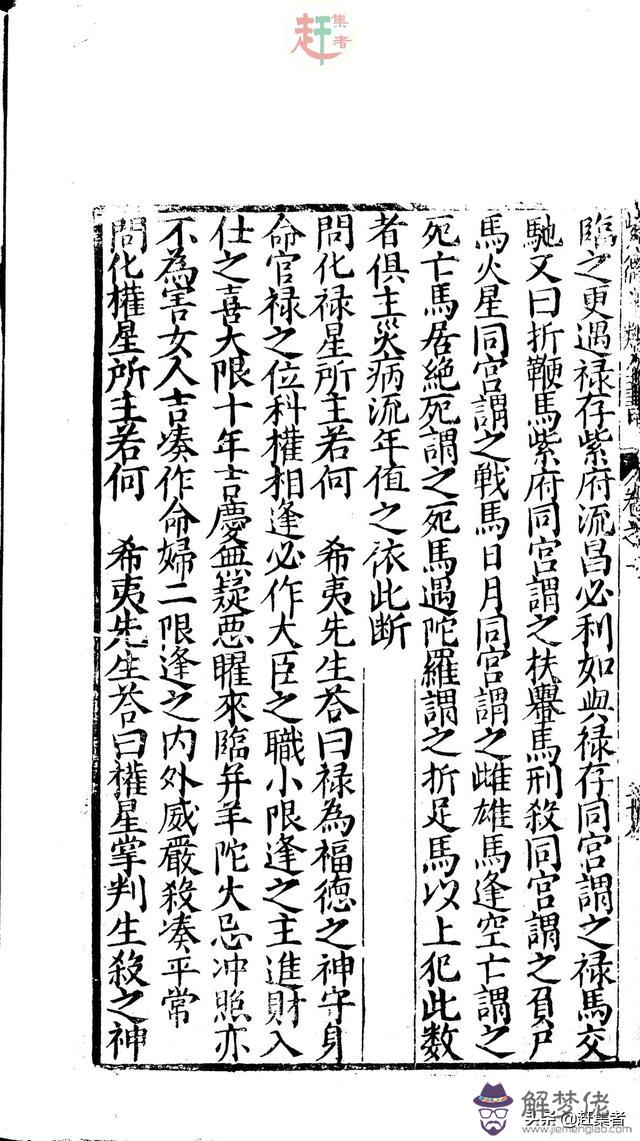 赶集者
臨之更遇禄存紫府流昌必利如與禄存同宫謂之禄馬交
馳又曰折鞭馬紫府同宫謂之扶轝馬刑殺同宫謂之負尸
馬火星同宫謂之戰馬日月同宫謂之雌雄馬逢空亡謂之
死亡馬居絶死謂之死馬遇陀羅謂之折足馬以上犯此數
者俱主災病流年值之依此断
問化禄星所主若何　希夷先生荅曰禄為福德之神守身
命官禄之位科權相逢必作大臣之職小限逢之主進財入
仕之喜大限十年吉慶無疑惡曜來臨并羊陀火忌冲照亦
不為害女人吉凑作命婦二限逢之内外威嚴殺凑平常
問化權星所主若何　希夷先生荅曰權星掌判生殺之神
解梦佬
www.jiemenglab.com
头条@赶集者